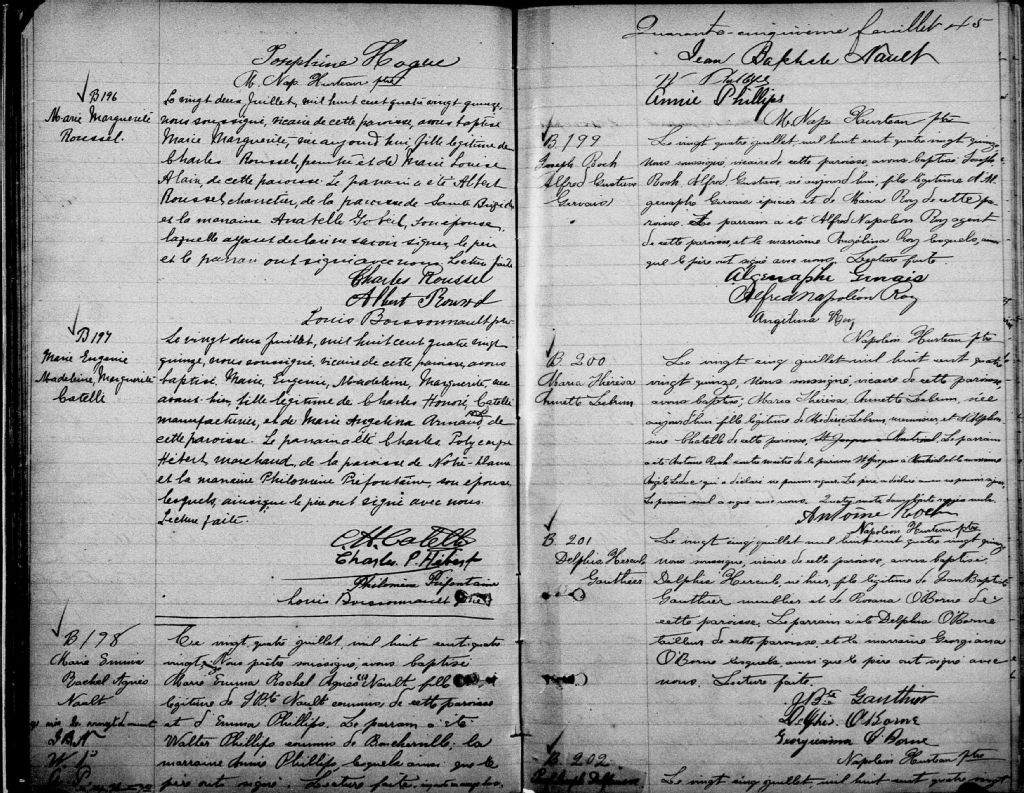 Josephine Hogue
M. Nap. Hurteau ptre
B196
Marie Marguerite
Roussel.
Le vingt deux Juillet, mil huit cent quatre vingt quinze,
nous soussigné, vicaire de cette paroisse, avons baptisé
Marie Marguerite, née aujourd'hui, fille légitime de
Charles Roussel, peintre et de Marie Louise
Alain, de cette paroisse. Le parrain a été Albert
Roussel charretier, de la paroisse de Sainte Brigide
et la marraine Anatelle Gobeil, son épouse,
laquelle ayant déclaré ne savoir signer, le père
et le parrain ont signé avec nous. Lecture faite
Charles Roussel
Albert Roussel
Louis Boissonnault ptre
B197
Marie Eugenie
Madeleine, Marguerite
Catelli
Le vingt deux Juillet, mil huit cent quatre vingt
quinze, nous soussigné, vicaire de cette paroisse, avons
baptisé Marie, Eugenie, Madeleine, Marguerite, née
avant-hier, fille légitime de Charles Honoré, Catelli
manufacturier, et de Marie Angelina Armand, de
cette paroisse. Le parrain a été Charles Polycarpe
Hébert marchand, de la paroisse de Notre-Dame
et la marraine Philomène Préfontaine, son épouse
lesquels, ainsi que le père ont signé avec nous.
Lecture faite.
C. H. Catelli
Charles P. Hébert
Philomène Préfontaine
Louis Boissonnault ptre
B198
Marie Emma
Rachel Agnès
Nault
J.B.N
W. P
A. P.
Ce vingt quatre juillet, mil huit cent quatre
vingt, Nous prêtre soussigné, avons baptisé
Marie Emma Rachel Agnès Nault, fille
légitime de J. Bte Nault commis de cette paroisse
et d'Emma Phillips. Le parrain a été
Walter Phillips commis de Boucherville; la
marraine Annie Phillips, lesquels ainsi que le
père ont signé. Lecture faite.
Quarante-cinquième feuillet 45
Jean Baptiste Nault
Annie Phillips
M. Nap. Hurteau ptre
B. 199
Joseph Roch
Alfred Gustave
Gervais
Le vingt quatre juillet, mil huit cent quatre vingt quinze,
Nous soussigné, vicaire de cette paroisse, avons baptisé Joseph
Roch Alfred Gustave, né aujourd'hui, fils légitime d'Al
genaphe Gervais épicier et de Maria Roy de cette pa
roisse. Le parrain a été Alfred Napoléon Roy agent
de cette paroisse, et la marraine Angélina Roy lesquels, ainsi
que le père ont signé avec nous. Lecture faite.
Algenaphe Gervais
Alfred Napoléon Roy
Angélina Roy
Napoléon Hurteau ptre
B. 200
Maria Thérèsa
Annette Lebrun
Le vingt cinq juillet mil huit cent quatre
vingt quinze, Nous soussigné, vicaire de cette paroisse,
avons baptisé, Maria Thérèsa Annette Lebrun, née
aujourd'hui fille légitime de Médéric Lebrun, menuisier, et d'Alphon
sine Chatelle de cette paroisse, St Jacques Montréal. Le parrain
a été Antoine Roch contre maître de la paroisse St Jacques Montréal et la marraine
Angèle Leduc qui a déclaré ne pouvoir signer. Le père a déclaré aussi ne pouvoir signer
Le parrain seul a signé avec nous.
Antoine Roch
Napoléon Hurteau ptre
B. 201
Delphis Hercule
Gauthier
Le vingt cinq juillet mil huit cent quatre vingt quinze
Nous soussigné, vicaire de cette paroisse, avons baptisé
Delphis Hercule, né hier, fils légitime de Jean Baptiste
Gauthier meublier et de Rosana O'Borne de
cette paroisse. Le parrain a été Delphis O'Borne
tailleur de cette paroisse, et la marraine Georgiana
O'Borne lesquels, ainsi que le père ont signé avec
nous. Lecture faite.
J Bte Gauthier
Delphis O'Borne
Georgianna O'Borne
Napoléon Hurteau ptre
B. 202.
Le vingt cinq juillet, mil huit cent quatre vingt